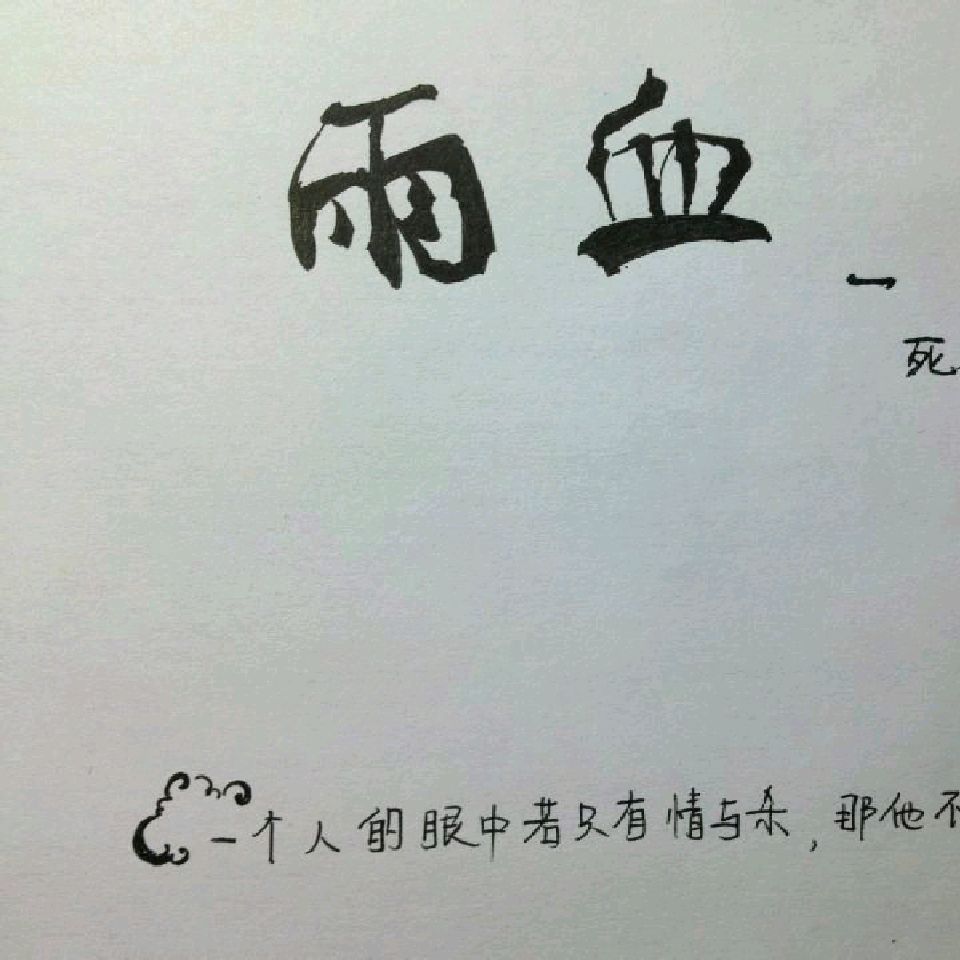 雨血
一
死
一个人的眼中若只有情与杀，那他不